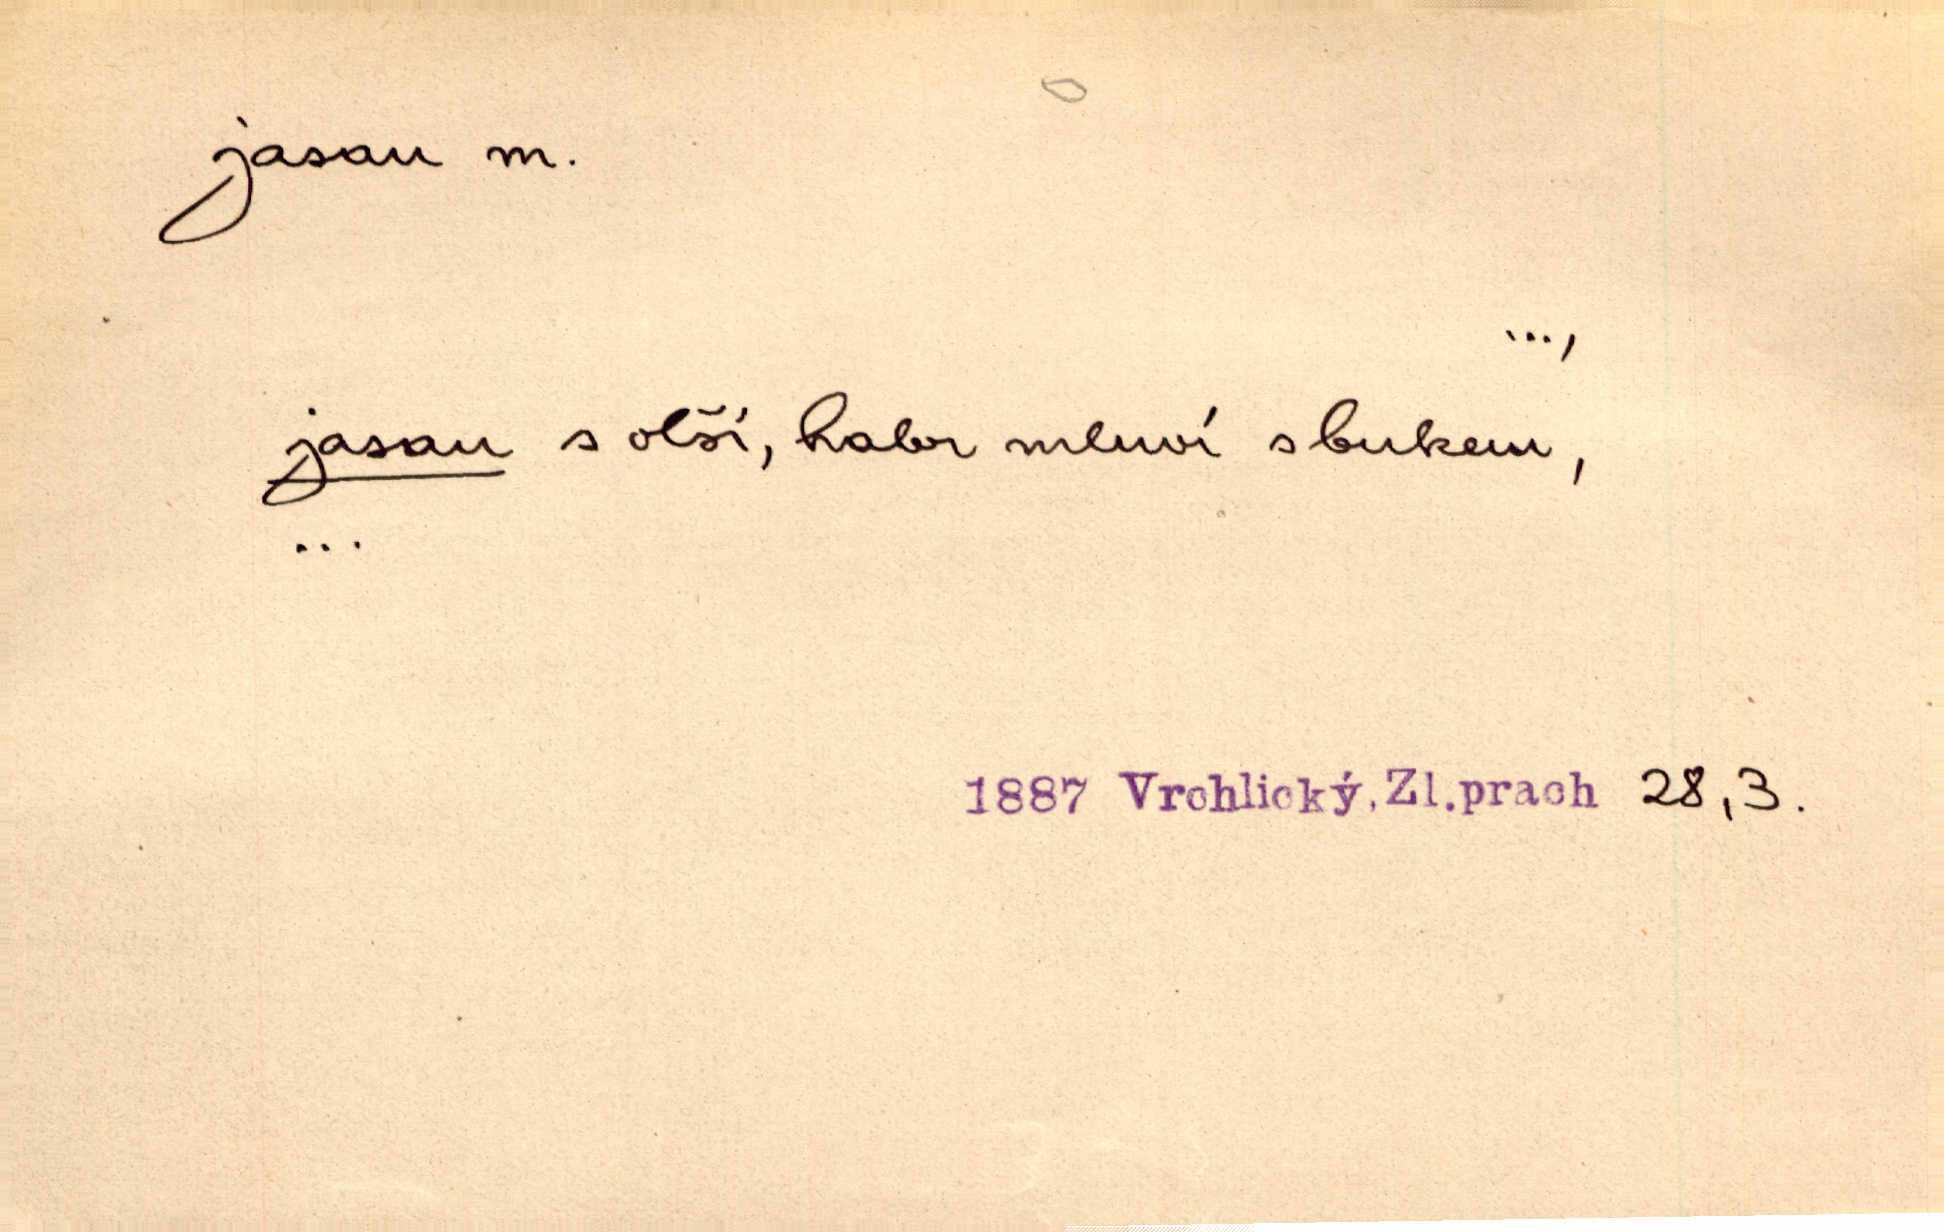 jasan m.
...,
jasan s olší, habr mluví s bukem,
...
1887 Vrchlický, Zl.prach 28,3.